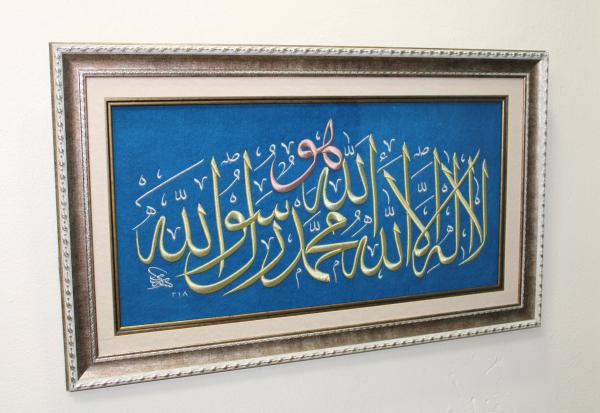 لا إله إلا الله هو الله محمد رسول الله
٢١٨